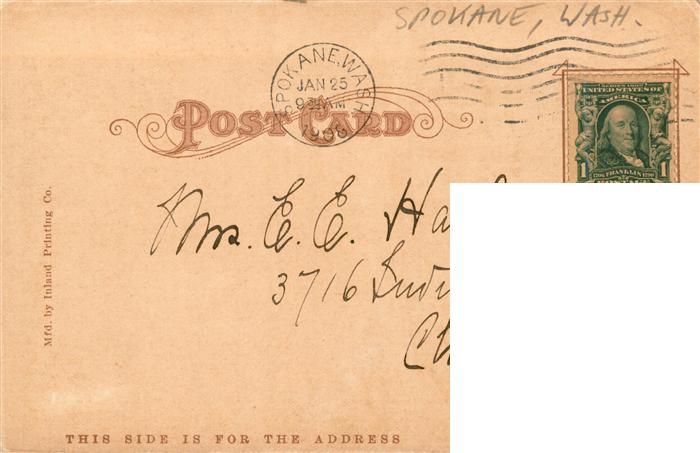 SPOKANE, WASH.
SPOKANE, WASH.
JAN 25
1908
POST CARD
SERIES 1902
UNITED STATES OF
AMERICA
1 1
1706 FRANKLIN 1790
POSTAGE
Mrs. E. E. Ha
3716 Indi
Ch
Mfd. by Inland Printing Co.
THIS SIDE IS FOR THE ADDRESS